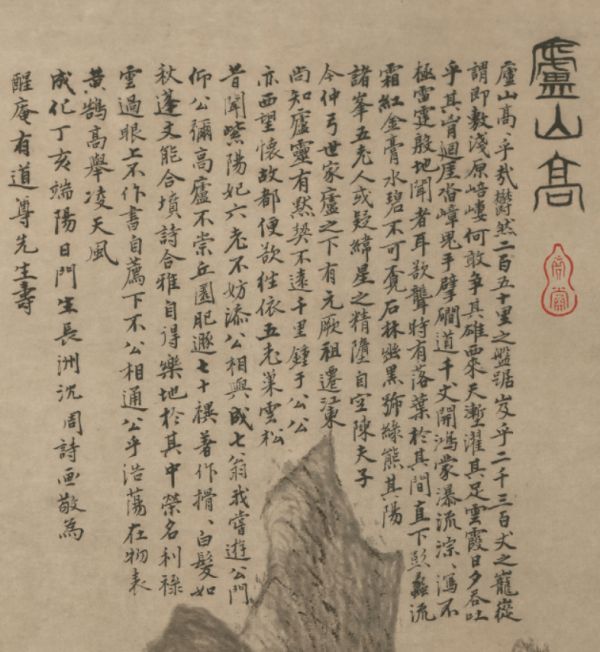 廬山高
廬山高、乎哉鬱然二百五十里之盤踞岌乎二千三百丈之巃嵸
謂即敷淺原培嶁何敢爭其雄西來天塹濯其足雲霞日夕吞吐
乎其胷迴崖沓嶂鬼手擘磵道千丈開鴻蒙瀑流淙、瀉不
極雷霆殷地聞者耳欲聾時有落葉於其間直下彭蠡流
霜紅金膏水碧不可覓石林幽黑號綠熊其陽
諸峯五老人或疑緯星之精墮自空陳夫子
今仲弓世家廬之下有元厥祖遷江東
尚知廬靈有默契不遠千里鍾于公公
亦西望懷故都便欲往依五老巢雲松
昔聞紫陽妃六老不妨添公相與成七翁我嘗遊公門
仰公彌高廬不崇丘園肥遯七十禩著作搰、白髮如
秋蓬文能合墳詩合雅自得樂地於其中榮名利祿
雲過眼上不作書自薦下不公相通公乎浩蕩在物表
黃鵠高舉凌天風
成化丁亥端陽日門生長洲沈周詩画敬為
醒庵有道尊先生壽